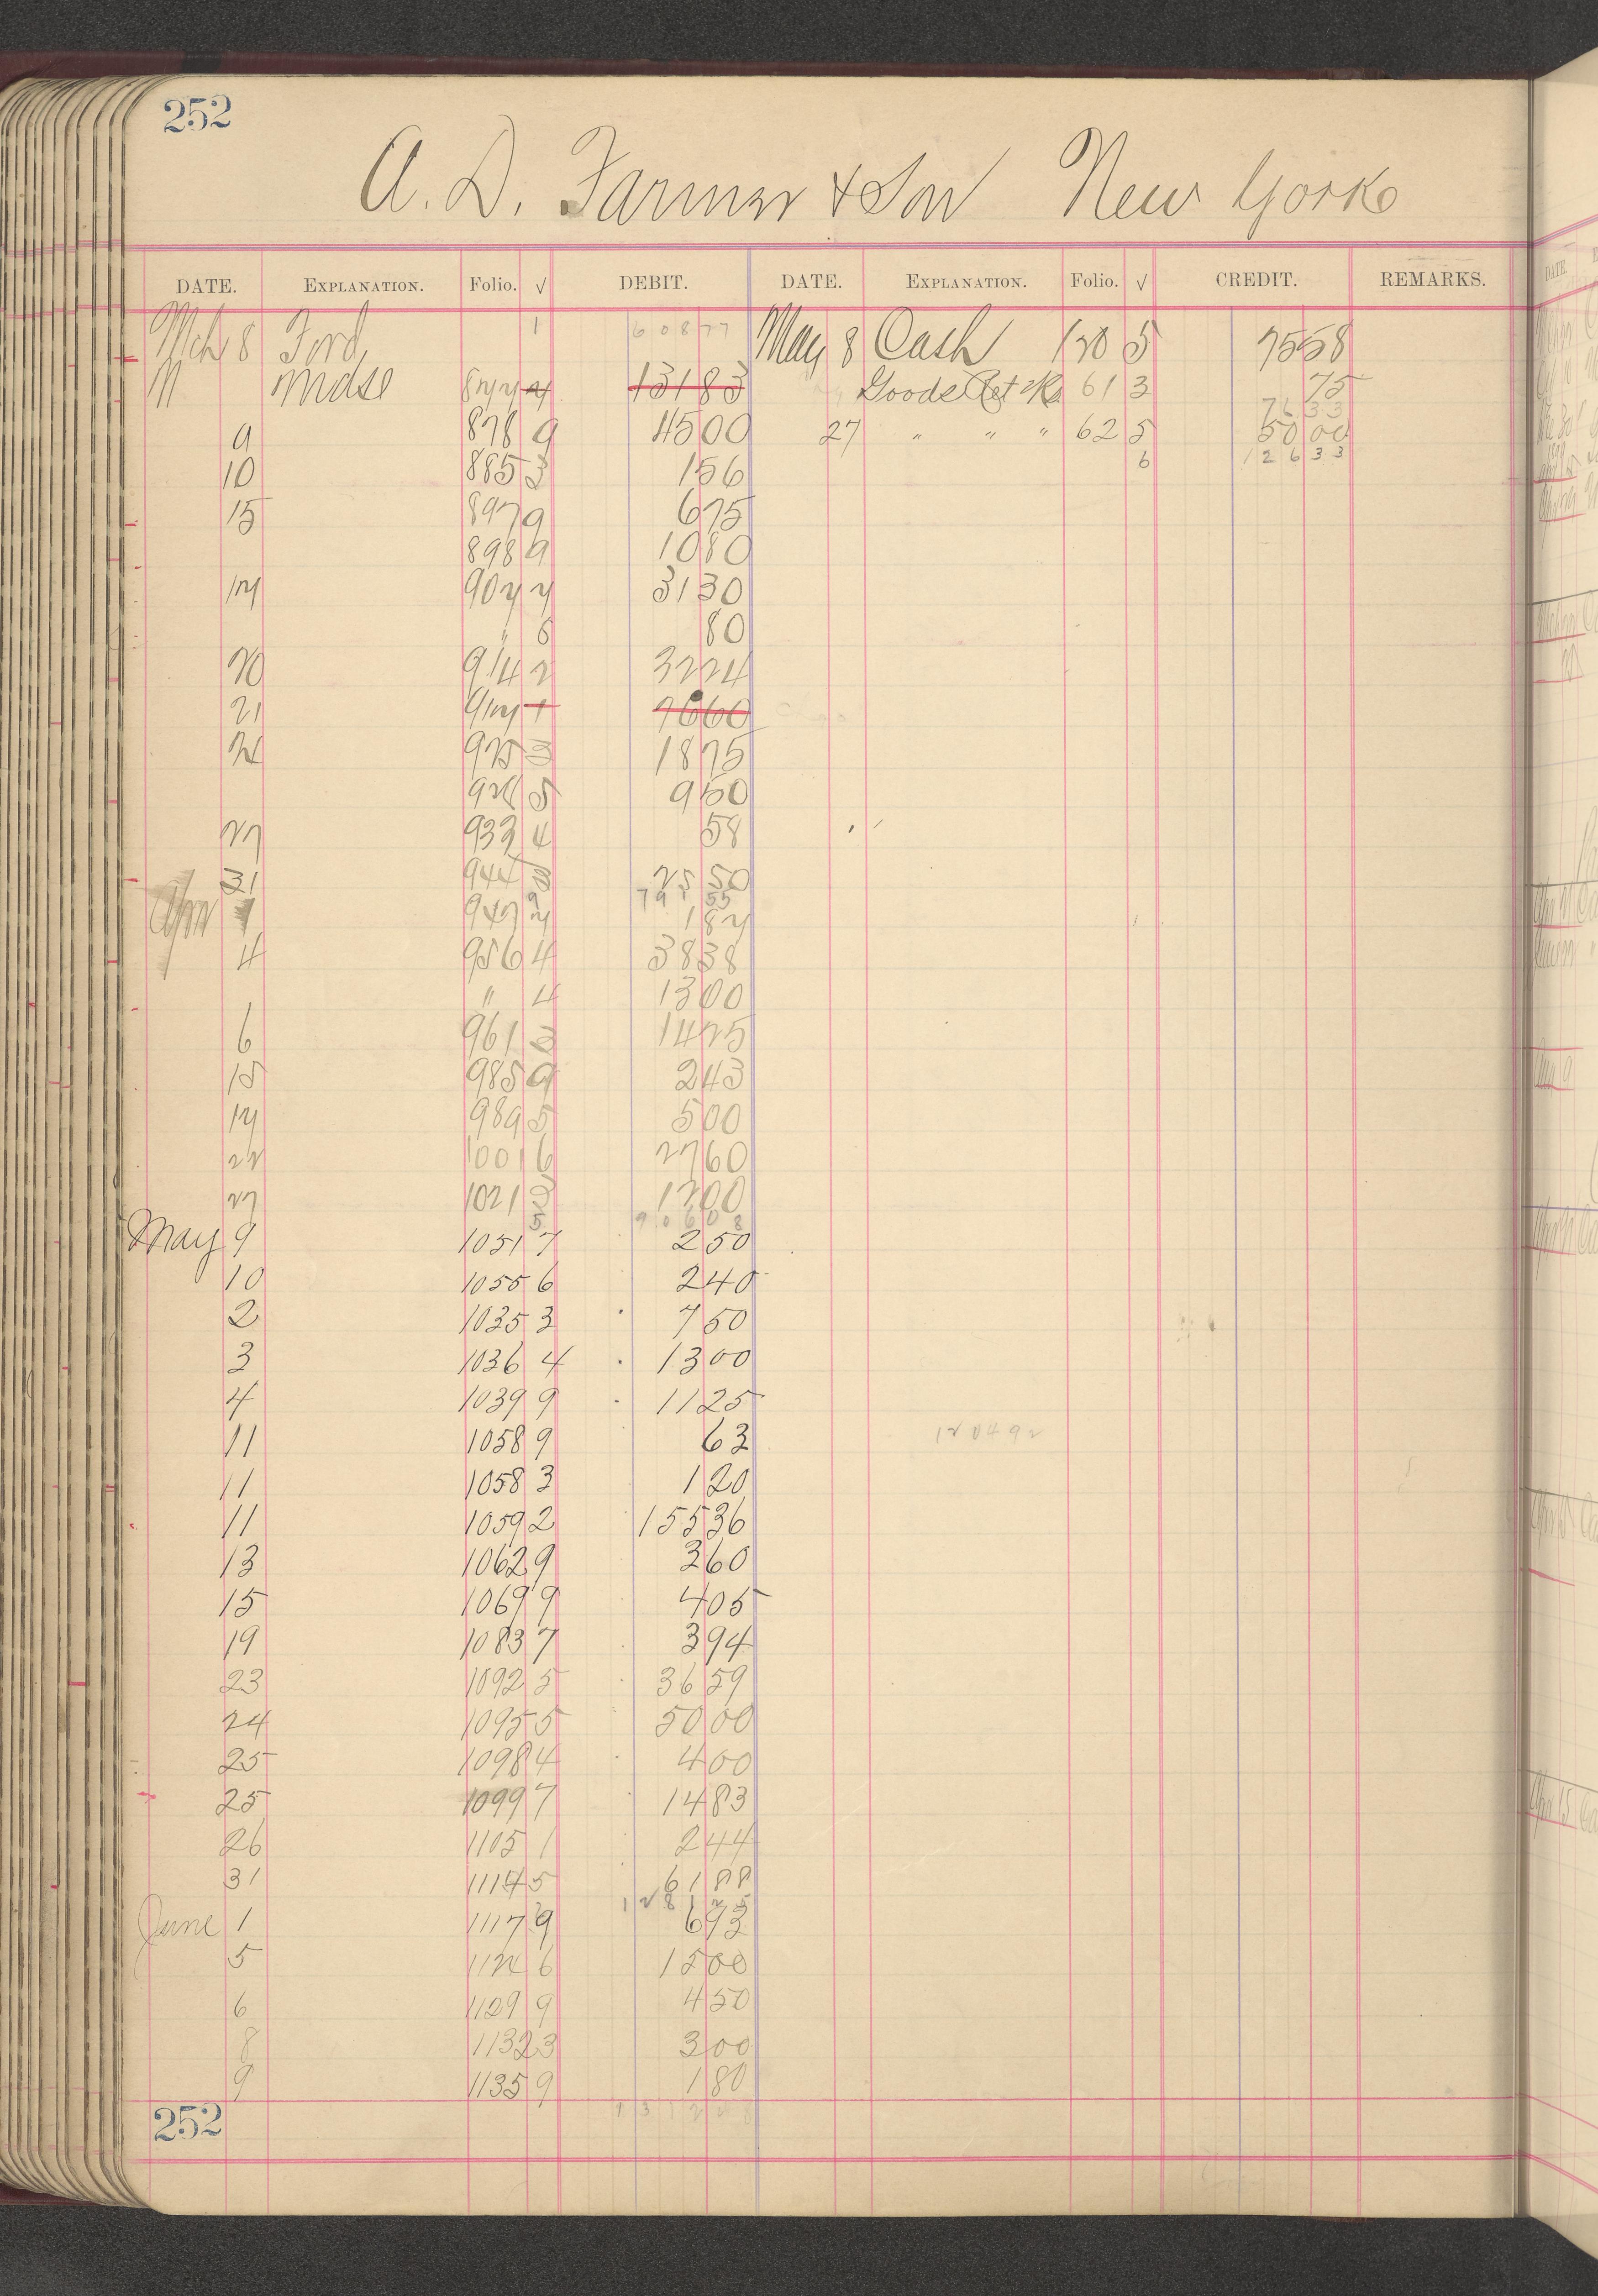 252
A. D. Farmer & Son New York
DATE. EXPLANATION. Folio. √ DEBIT. DATE. EXPLANATION. Folio. √ CREDIT. REMARKS.
Mch 8 Ford 1 60877 May 8 Cash 130 5 7558
" Mdse 877 4 13183 Goods Ret 61 3 75
7633
9 878 9 4500 27 " " " 62 5 5000
10 885 3 156 6 12633
15 897 9 675
898 9 1080
17 907 7 3130
" 8 80
20 914 2 3224
21 917 1 7660
24 925 3 1875
926 5 950
27 933 4 58
31 944 3 2550
Apr 1 947 7 187
4 956 4 3838
" 4 1300
6 961 3 1425
15 985 9 243
17 989 5 500
22 1001 6 2760
27 1021 3 1200
5 90608
May 9 1051 7 250
10 1055 6 240
2 1035 3 750
3 1036 4 1300
4 1039 9 1125
11 1058 9 63 120492
11 1058 3 120
11 1059 2 15536
13 1062 9 360
15 1069 9 405
19 1083 7 394
23 1092 5 3659
24 1095 5 5000
25 1098 4 400
25 1099 7 1483
26 1105 1 244
31 1114 5 6188
June 1 1117 9 693
5 1124 6 1500
6 1129 9 450
8 1132 3 300
9 1135 9 180
252